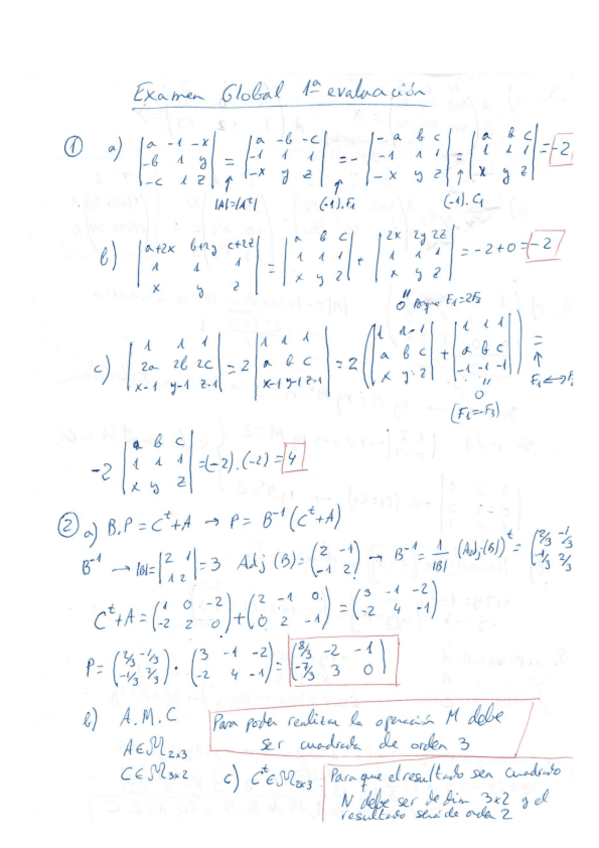 Examen Global 1ª evaluación
① a) |a -1 -x; -b 1 y; -c 1 z| = |a -b -c; -1 1 1; -x y z| = - |-a b c; -1 1 1; -x y z| = |a b c; 1 1 1; x y z| = -2
|A|=|Aᵗ| (-1).F₁ (-1).C₁
b) |a+2x b+2y c+2z; 1 1 1; x y z| = |a b c; 1 1 1; x y z| + |2x 2y 2z; 1 1 1; x y z| = -2+0 = -2
0 Porque F₁=2F₃
c) |1 1 1; 2a 2b 2c; x-1 y-1 z-1| = 2 |1 1 1; a b c; x-1 y-1 z-1| = 2 (|1 1 1; a b c; x y z| + |1 1 1; a b c; -1 -1 -1|) =
0
(F₁=-F₃)
F₁↔F
-2 |a b c; 1 1 1; x y z| = (-2).(-2) = 4
② a) B.P = Cᵗ+A → P = B⁻¹(Cᵗ+A)
B⁻¹ → |B| = |2 1; 1 2| = 3 Adj(B) = (2 -1; -1 2) → B⁻¹ = 1/|B| (Adj(B))ᵗ = (2/3 -1/3; -1/3 2/3
Cᵗ+A = (1 0 -2; -2 2 0) + (2 -1 0; 0 2 -1) = (3 -1 -2; -2 4 -1)
P = (2/3 -1/3; -1/3 2/3) · (3 -1 -2; -2 4 -1) = (8/3 -2 -1; -7/3 3 0)
b) A.M.C
A∈M₂ₓ₃
C∈M₃ₓ₂
Para poder realizar la operación M debe
ser cuadrada de orden 3
c) Cᵗ∈M₂ₓ₃
Para que el resultado sea cuadrado
N debe ser de dim 3x2 y el
resultado será de orden 2